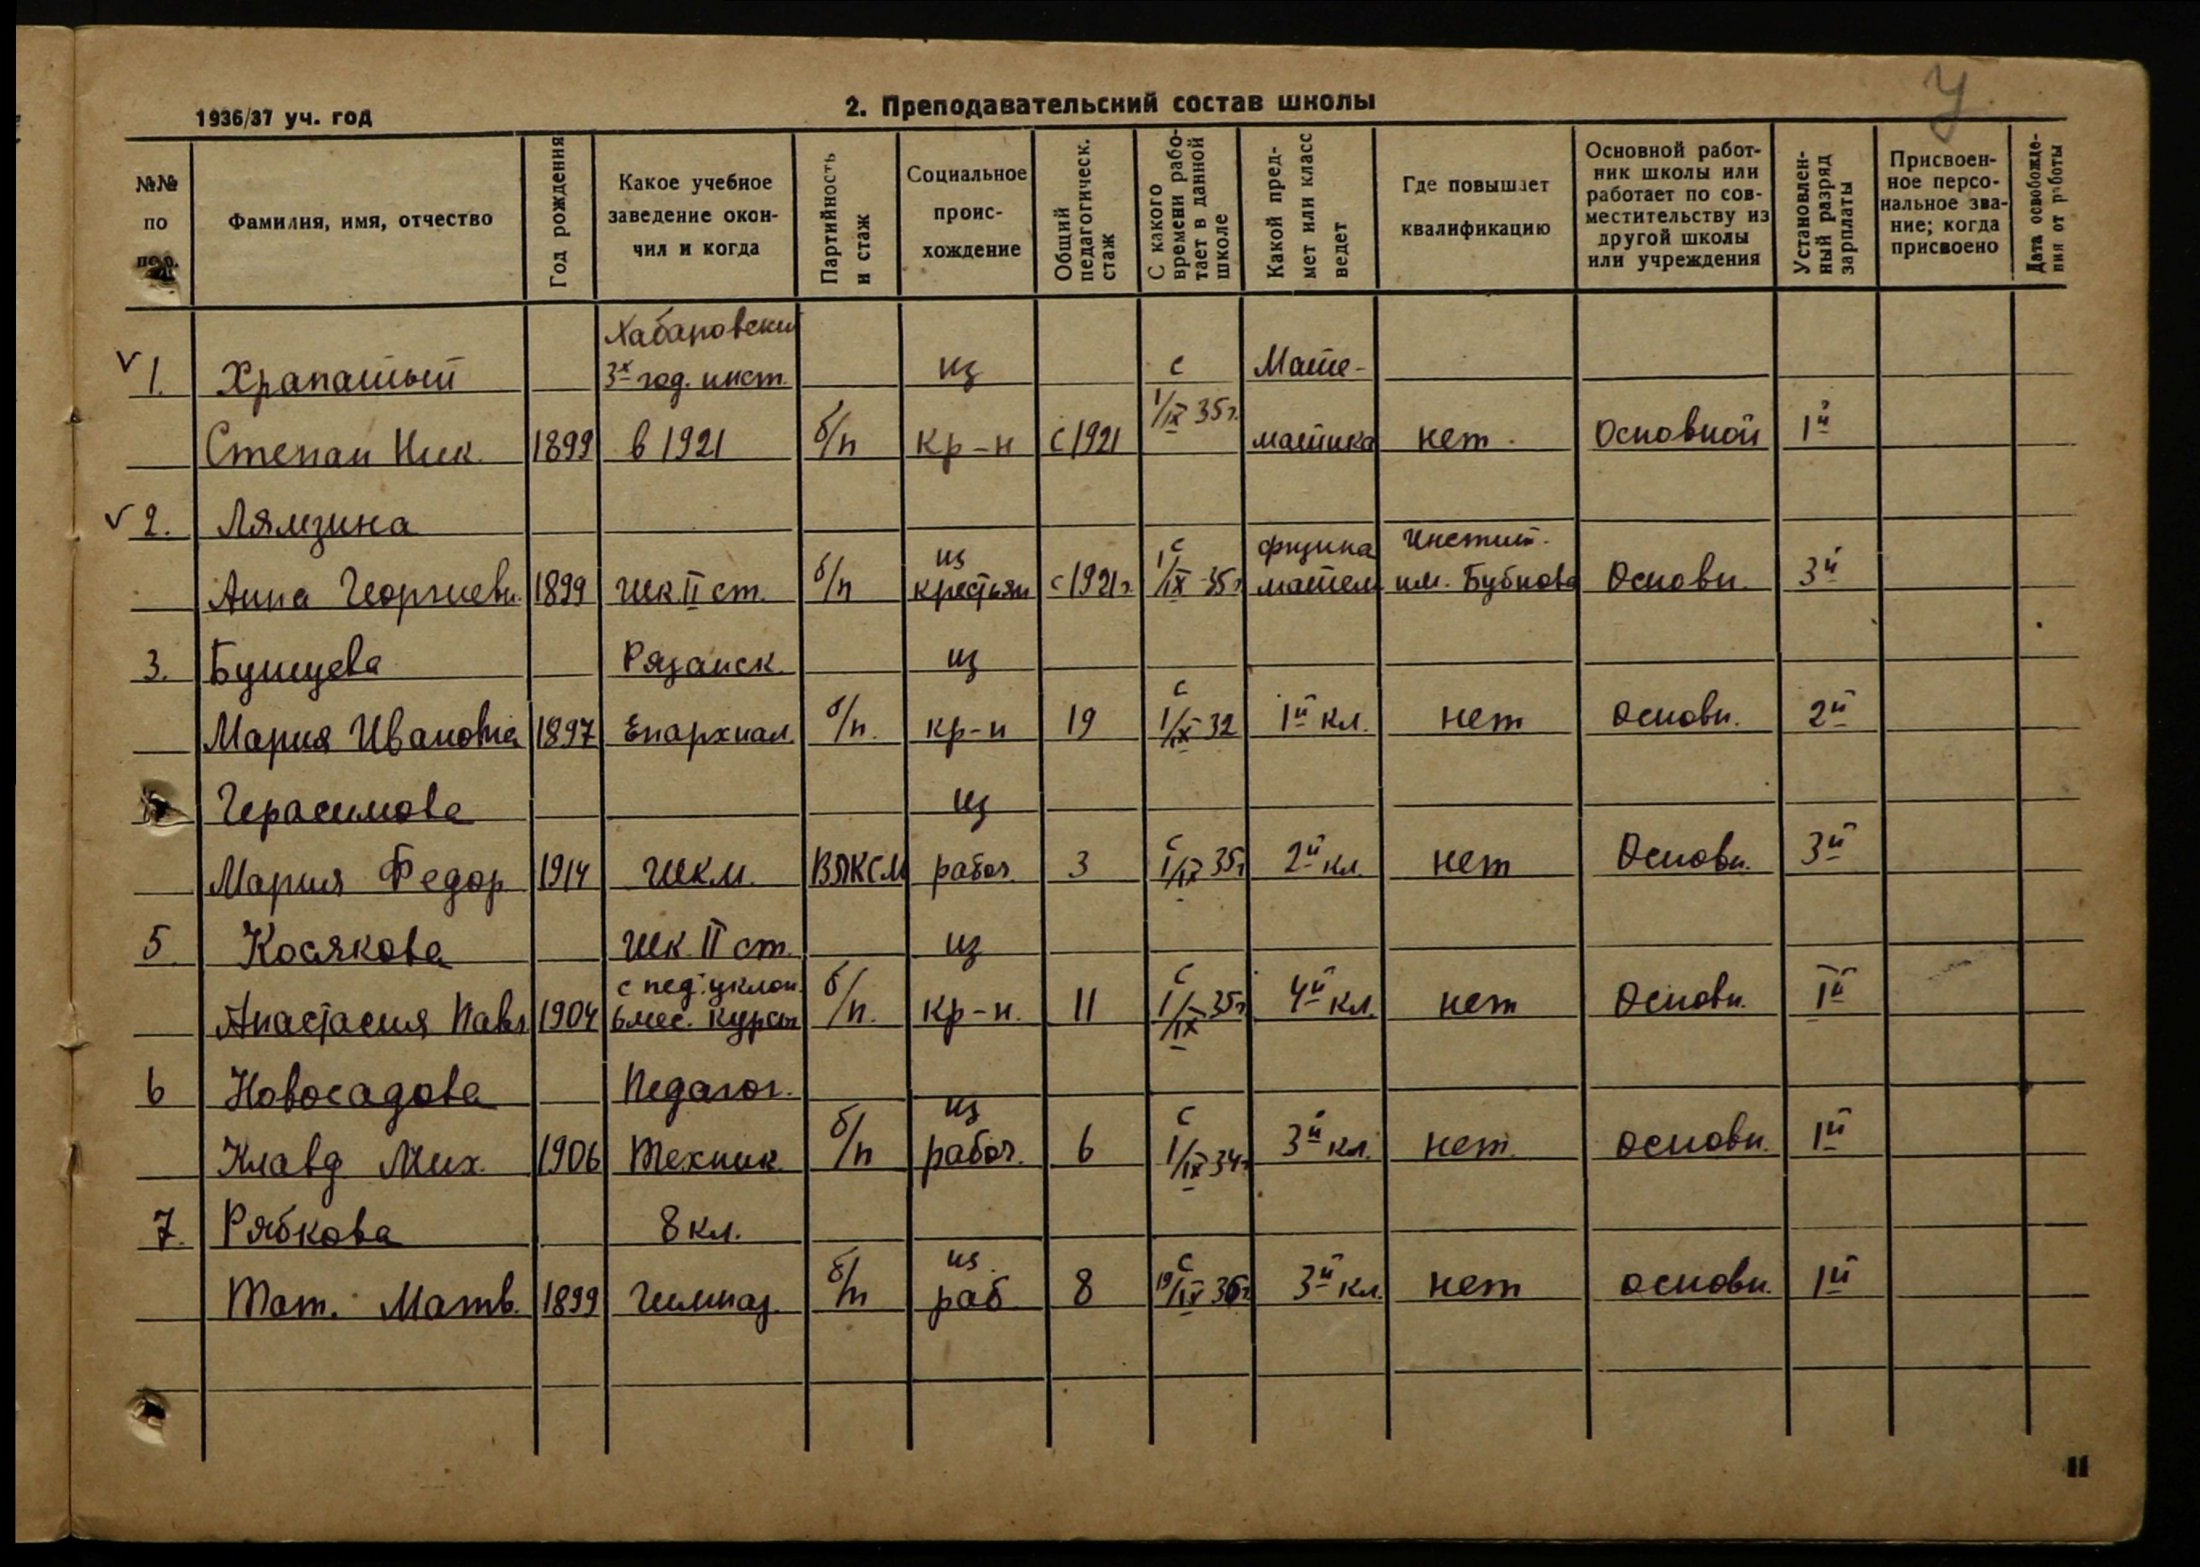 У
1936/37 уч. год
2. Преподавательский состав школы
№№
по
пор.
Фамилия, имя, отчество
Год рождения
Какое учебное
заведение окон-
чил и когда
Партийность
и стаж
Социальное
проис-
хождение
Общий
педагогическ.
стаж
С какого
времени рабо-
тает в данной
школе
Какой пред-
мет или класс
ведет
Где повышает
квалификацию
Основной работ-
ник школы или
работает по сов-
местительству из
другой школы
или учреждения
Установлен-
ный разряд
зарплаты
Присвоен-
ное персо-
нальное зва-
ние; когда
присвоено
Дата освобожде-
ния от работы
Хабаровский
√ 1. Храпатый 3х год. инст. из с Мате-
Степан Ник. 1899 в 1921 б/п кр-н с 1921 1/IX 35г. матика нет. Основной 1й
√ 2. Лямзина
из с физика Инстит.
Анна Георгиевн. 1899 шк II ст. б/п крестьян с 1921г. 1/IX-35г матем им. Бубнова Основн. 3й
3. Бунцева Рязанск. из
Мария Ивановна 1897 Епархиал. б/п. кр-н 19 с 1/IX 32 1й кл. нет основн. 2й
Герасимова из
Мария Федор 1914 шкм. ВЛКСМ рабоч. 3 с 1/IX 35г 2й кл. нет Основн. 3й
5 Косякова шк. II ст. из
с пед. уклон.
Анастасия Павл 1904 6 мес. курсы б/п. кр-н. 11 с 1/IX 35г 4й кл. нет Основн. 1й
6 Новосадова Педагог. из
Клавд Мих. 1906 Техник. б/п рабоч. 6 с 1/IX 34г 3й кл. нет. основн. 1й
7. Рябкова 8 кл. из
Тат. Матв. 1899 Гимназ. б/п раб. 8 с 19/IX 36г 3й кл. нет основн. 1й
11